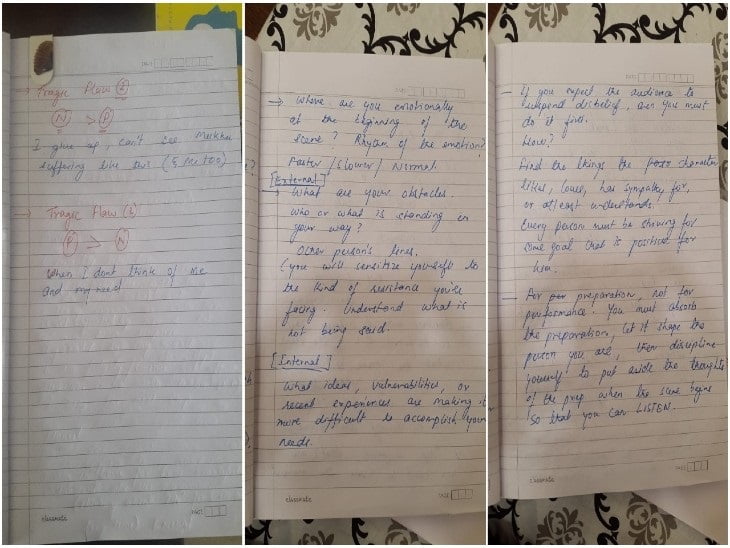 DATE
→ Tragic Flaw (1)
N > P
I give up, can't see
suffering like this (& me too)
→ Tragic Flaw (2)
P > N
When I don't think of me
and my need
classmate
PAGE
DATE
→ Where are you emotionally
at the beginning of the
scene? Rhythm of the emotion?
Faster / Slower / Normal.
[External]
→ What are your obstacles.
Who or what is standing in
your way?
Other person's lines.
(you will sensitize yourself to
the kind of resistance you're
facing. Understand what is
not being said.
[Internal]
What ideas, vulnerabilities, or
recent experiences are making it
more difficult to accomplish your
needs.
classmate
PAGE
DATE
— If you expect the audience to
suspend disbelief, then you must
do it first.
How?
Find the things the character
likes, loves, has sympathy for,
or atleast understands.
Every person must be striving for
some goal that is positive for
him.
— For preparation, not for
performance. You must absorb
the preparation, let it shape the
person you are, then discipline
yourself to put aside the thoughts
of the prep when the scene begins
so that you can LISTEN.
classmate
PAGE